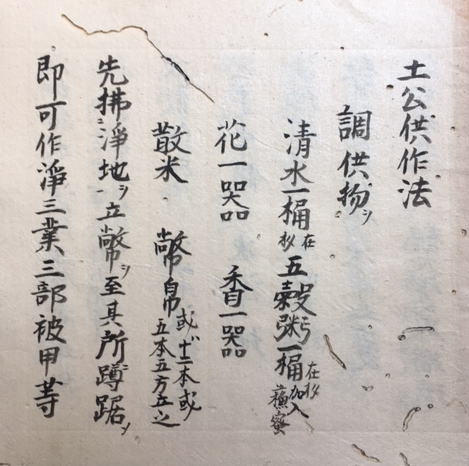 土公供作法
調供物ヲ
清水一桶在杓五穀粥一桶在杓加入蘓蜜
花一噐 香一噐
散米 幣帛或十二本或五本五方立之
先拂淨地ヲ立幣ヲ至其所蹲踞
即可作淨三業三部被甲等